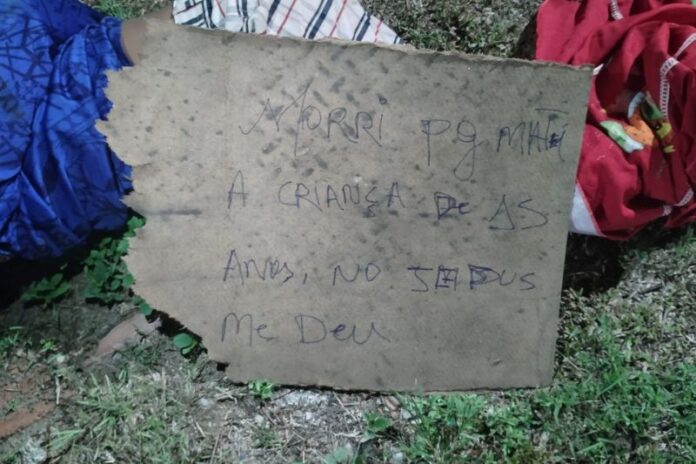 MORRI PQ MATEI
A CRIANÇA DE 15
ANOS, NO
ME DEU